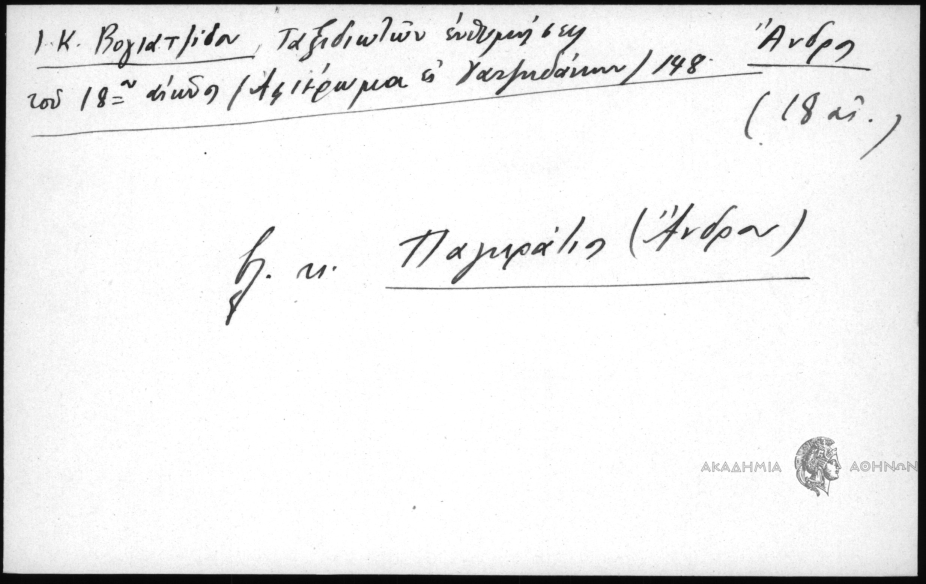 Ι. Κ. Βογιατζίδου, Ταξιδιωτῶν ἐνθυμήσεις
τοῦ 18ου αἰῶνος (Ἀφιέρωμα εἰς Χατζιδάκιν) 148
Ἄνδρος
(18 αἰ.)
βλ. κ. Παγκράτιος (Ἄνδρου)
ΑΚΑΔΗΜΙΑ ΑΘΗΝΩΝ